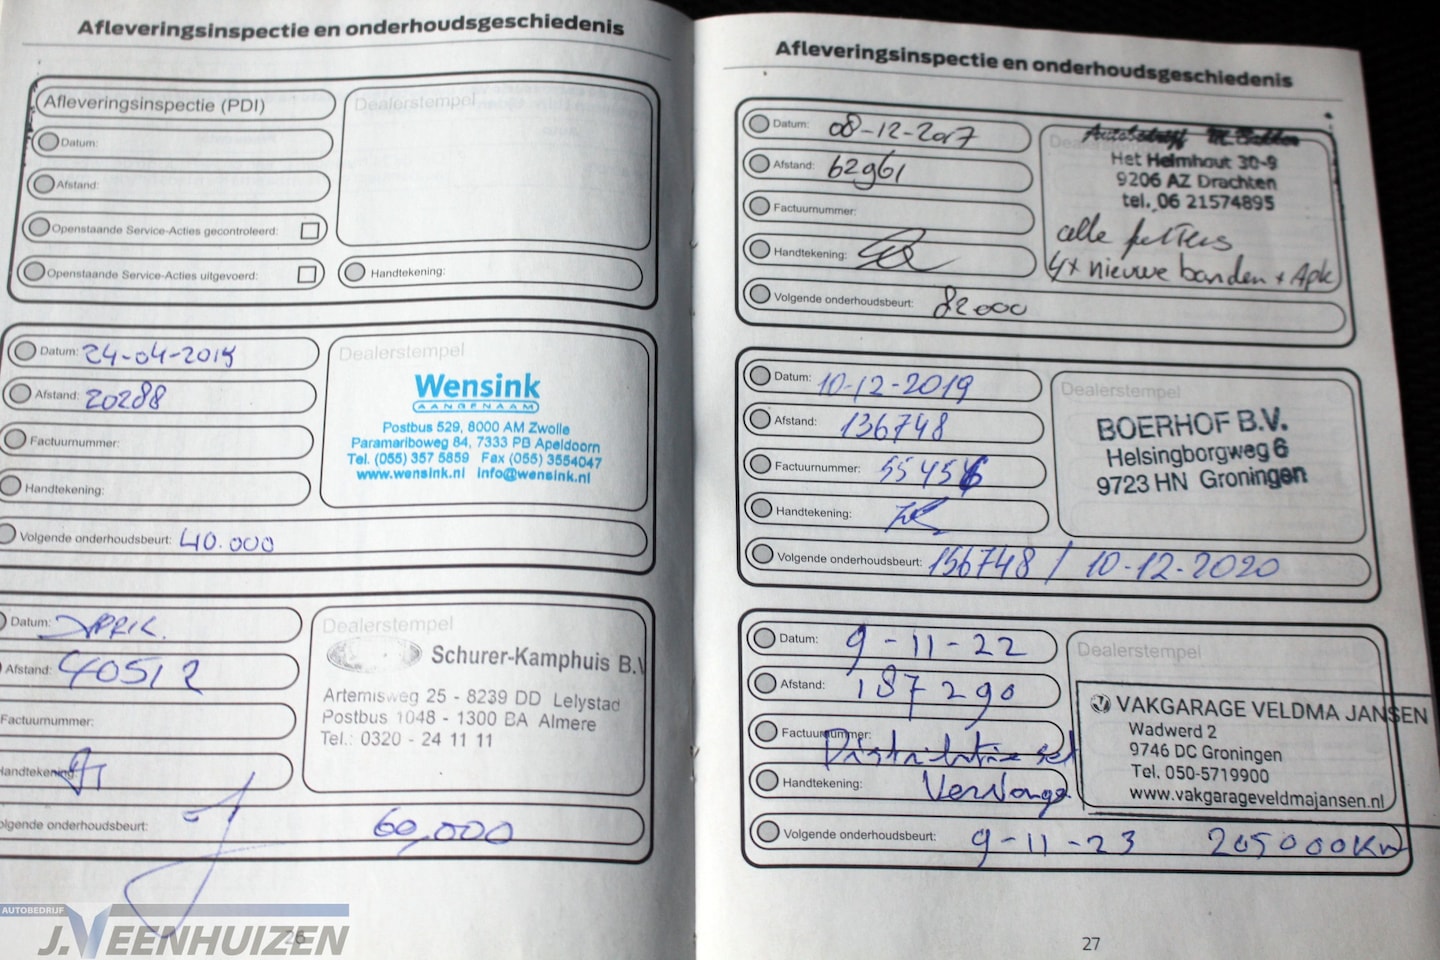 Afleveringsinspectie en onderhoudsgeschiedenis
Afleveringsinspectie (PDI)
Datum:
Afstand:
Openstaande Service-Acties gecontroleerd:
Openstaande Service-Acties uitgevoerd:
Dealerstempel
Handtekening:
Datum: 24-04-2015
Afstand: 20288
Factuurnummer:
Handtekening:
Volgende onderhoudsbeurt: 40.000
Dealerstempel
Wensink
AANGENAAM
Postbus 529, 8000 AM Zwolle
Paramariboweg 84, 7333 PB Apeldoorn
Tel. (055) 357 5859 Fax (055) 3554047
www.wensink.nl info@wensink.nl
Datum:
Afstand: 40512
Factuurnummer:
Handtekening:
Volgende onderhoudsbeurt: 60,000
Dealerstempel
Schurer-Kamphuis B.V
Artemisweg 25 - 8239 DD Lelystad
Postbus 1048 - 1300 BA Almere
Tel.: 0320 - 24 11 11
26
AUTOBEDRIJF
J.VEENHUIZEN
Afleveringsinspectie en onderhoudsgeschiedenis
Datum: 08-12-2017
Afstand: 62961
Factuurnummer:
Handtekening:
Volgende onderhoudsbeurt: 82000
Autobedrijf
Het Helmhout 30-9
9206 AZ Drachten
tel. 06 21574895
alle filters
4x nieuwe banden + Apk
Datum: 10-12-2019
Afstand: 136748
Factuurnummer: 55456
Handtekening:
Volgende onderhoudsbeurt: 156748 / 10-12-2020
Dealerstempel
BOERHOF B.V.
Helsingborgweg 6
9723 HN Groningen
Datum: 9-11-22
Afstand: 187290
Factuurnummer: Distributie set
Handtekening: Vervangen
Volgende onderhoudsbeurt: 9-11-23 205000Km
Dealerstempel
VAKGARAGE VELDMA JANSEN
Wadwerd 2
9746 DC Groningen
Tel. 050-5719900
www.vakgarageveldmajansen.nl
27